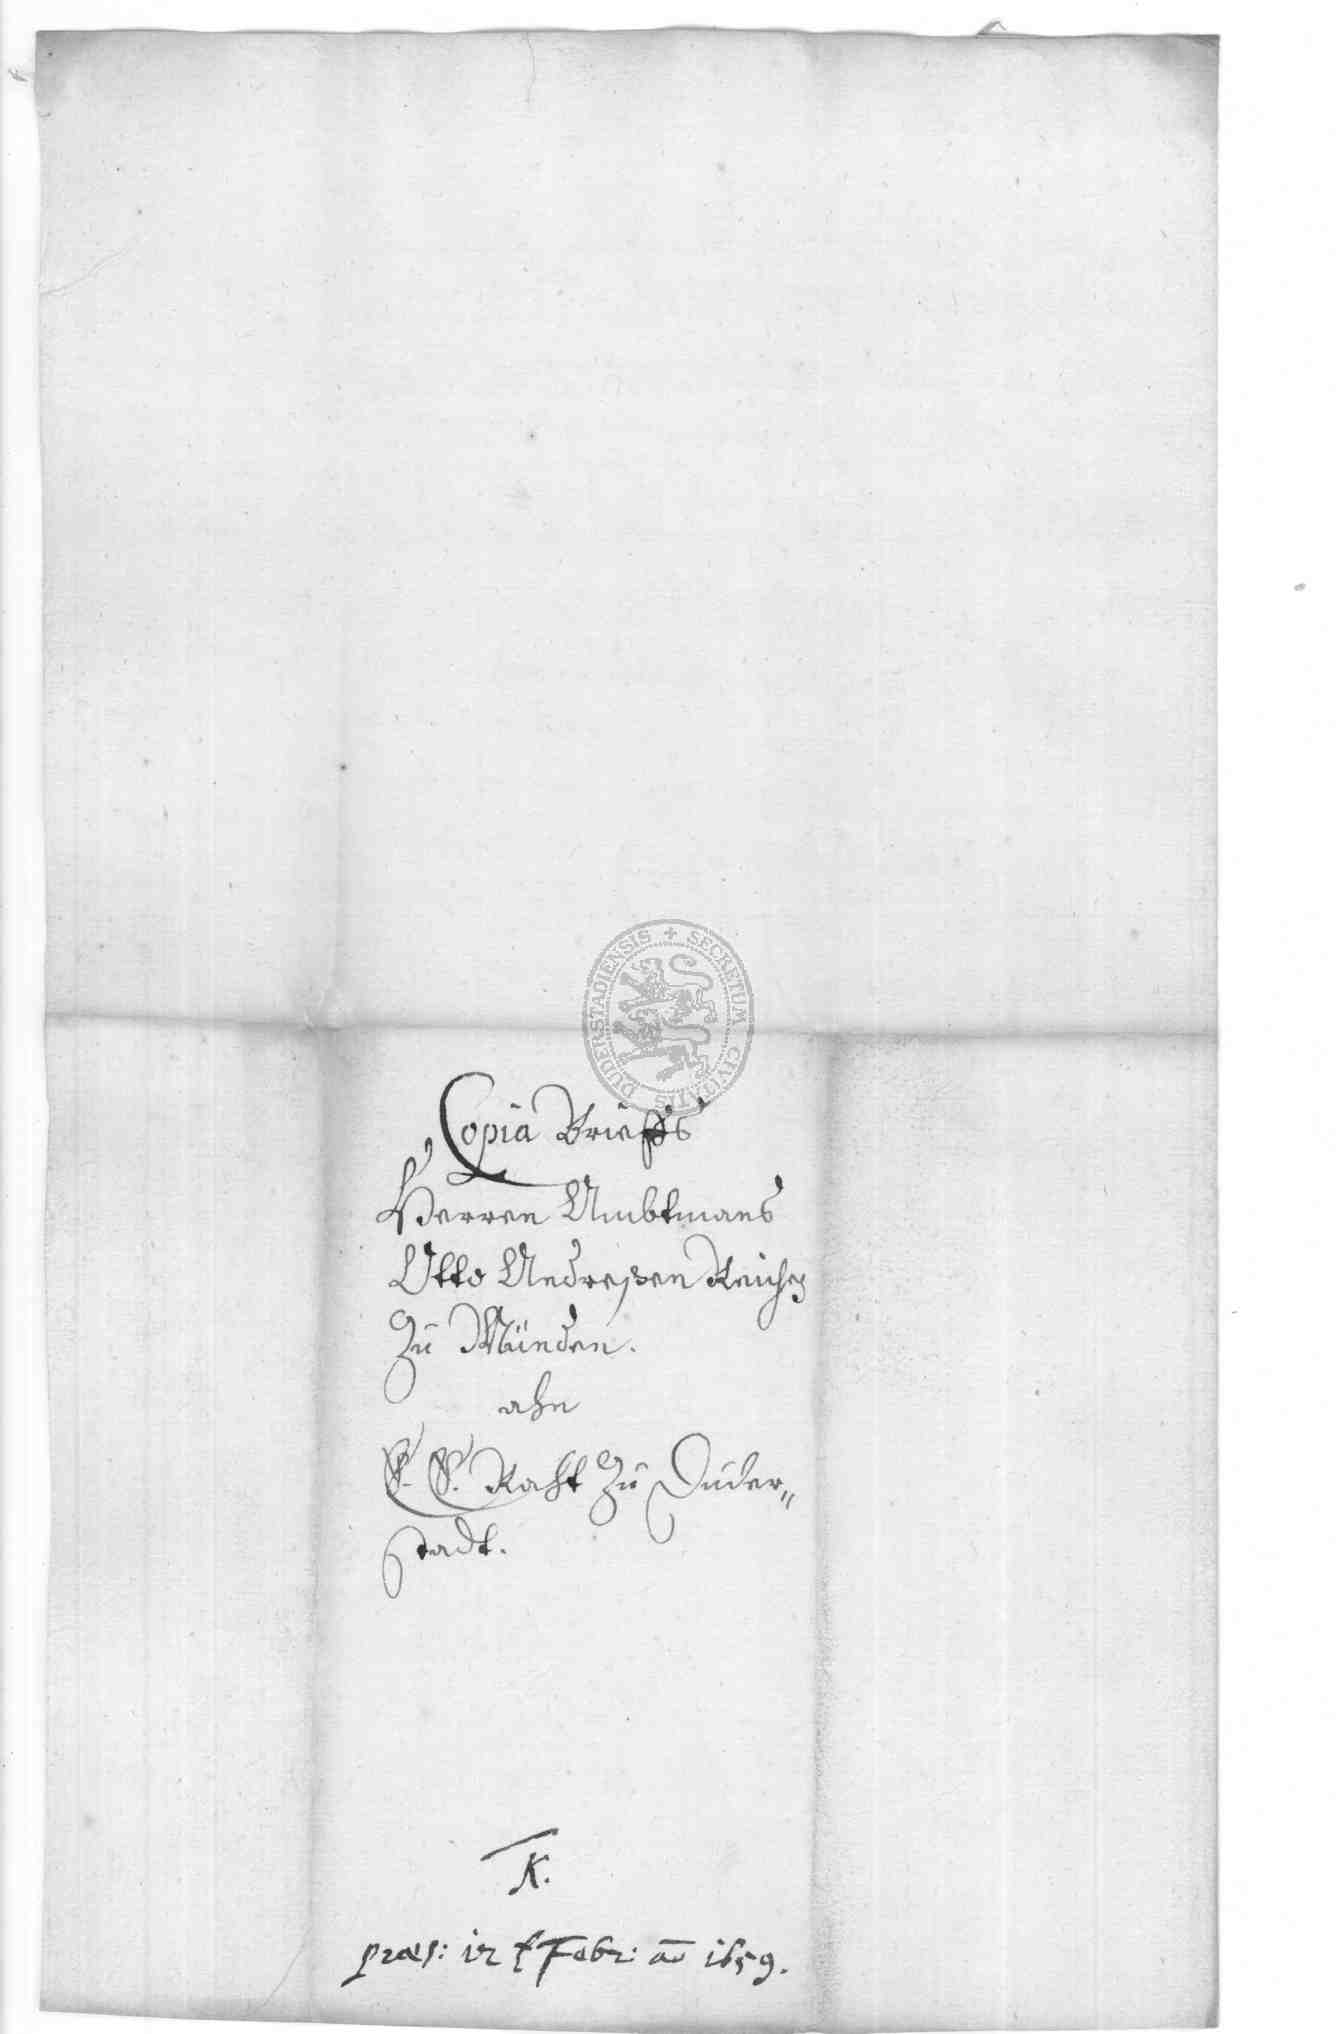 DUDERSTADIENSIS + SECRETUM CIVITATIS
Copia Brieffs
Herren Ambtmans
Otto Andreßen Reichen
Zu Münden.
ahn
E. E. Raht Zu Duder„
stadt.
K.
præs: Febr: ao 1659.